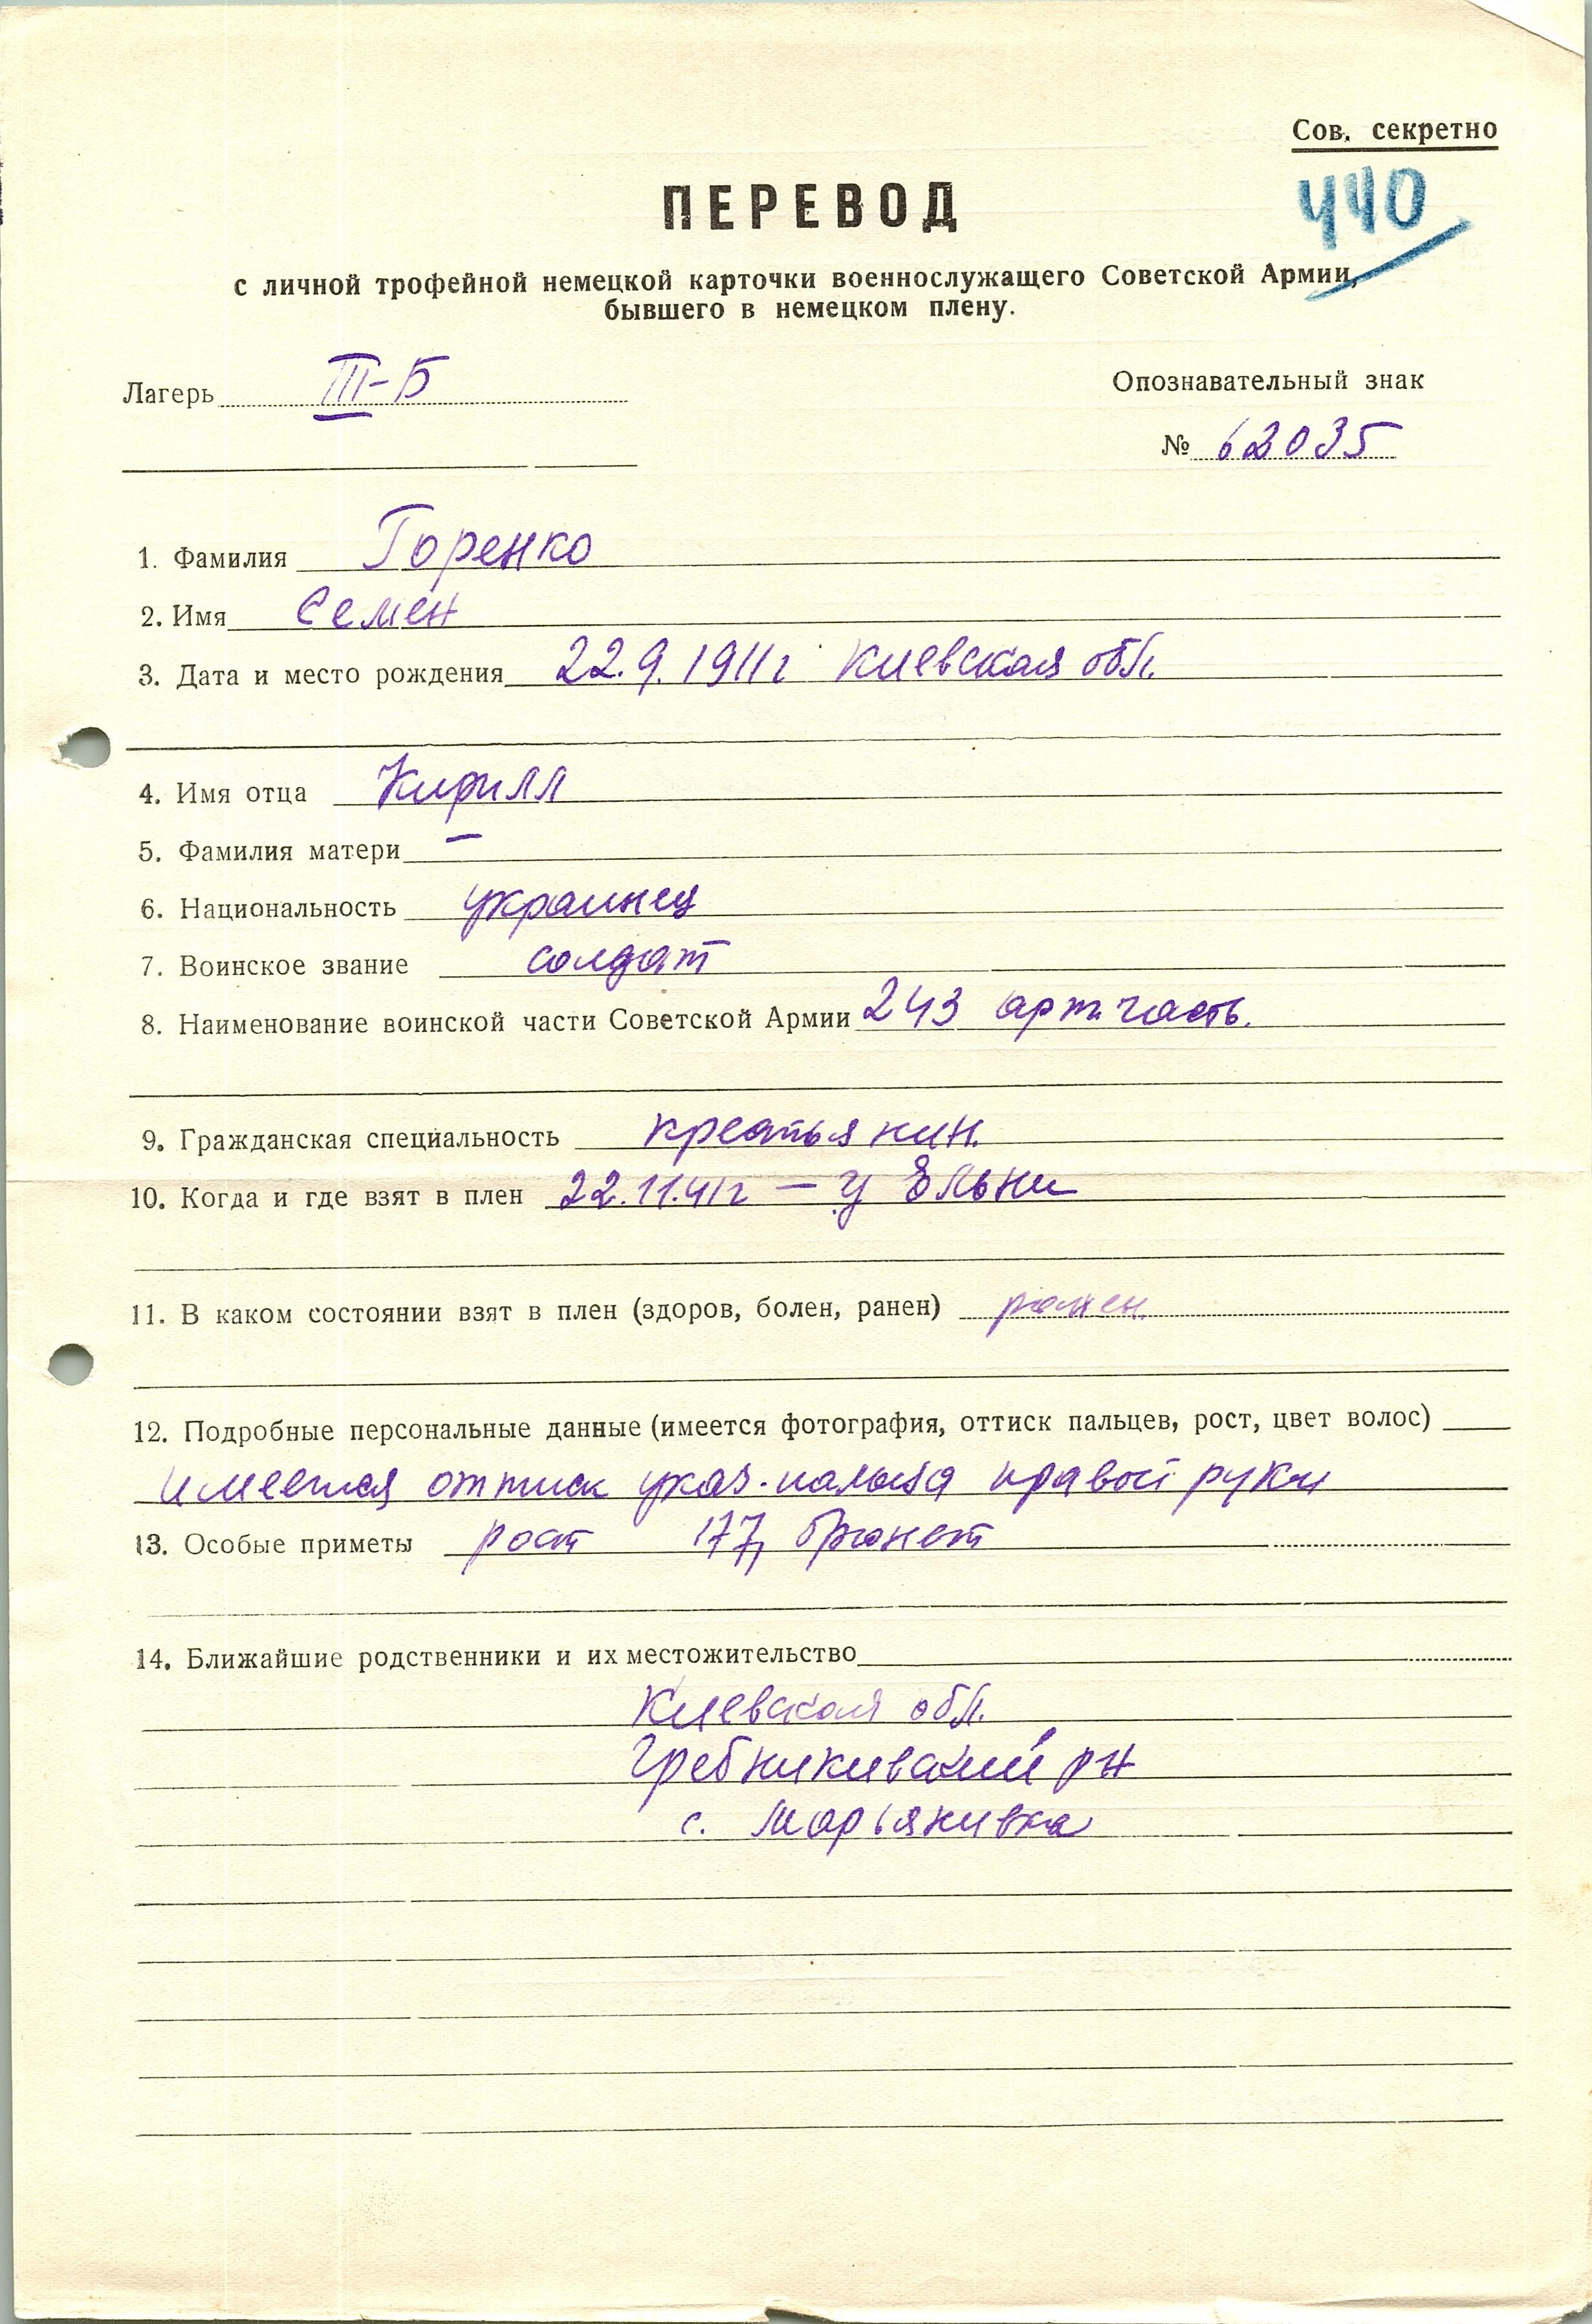 Сов. секретно
440
ПЕРЕВОД
с личной трофейной немецкой карточки военнослужащего Советской Армии,
бывшего в немецком плену.
Лагерь III-Б
Опознавательный знак
№ 62035
1. Фамилия Горенко
2. Имя Семен
3. Дата и место рождения 22.9.1911г Киевская обл.
4. Имя отца Кирилл
5. Фамилия матери –
6. Национальность украинец
7. Воинское звание солдат
8. Наименование воинской части Советской Армии 243 арт. часть.
9. Гражданская специальность крестьянин.
10. Когда и где взят в плен 22.11.41г – у Ельни
11. В каком состоянии взят в плен (здоров, болен, ранен) ранен.
12. Подробные персональные данные (имеется фотография, оттиск пальцев, рост, цвет волос)
имеется оттиск указ. пальца правой руки
13. Особые приметы рост 177, брюнет
14. Ближайшие родственники и их местожительство
Киевская обл.
Гребникивский рн
с. Марьянивка